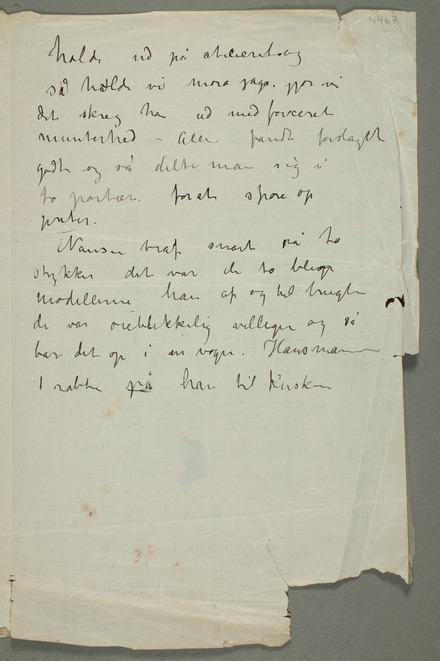 N467
holde ud på atelieret og
så holde vi mora jaga. gjør vi
det skreg han ud med forceret
munterhed – Alle fandt forslaget
godt og så delte man sig i
to partier. for at spore op
piker.
Nansen traf snart på to
stykker det var de to blege
modellerne han af og til brugte
de var øieblikkelig villige og så
bar det op i en vogn. Hansmann
! rabbte på han til Kusken